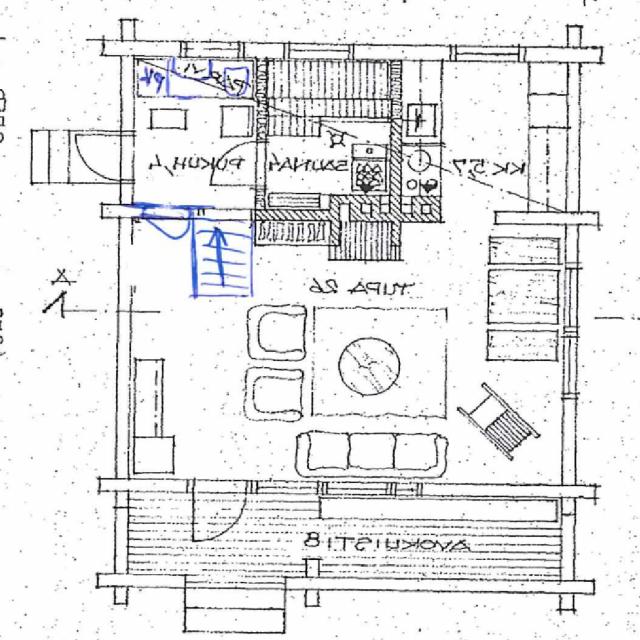 PUKUH. 4
SAUNA 4
KK 5,7
TUPA 26
A
AVOKUISTI 8